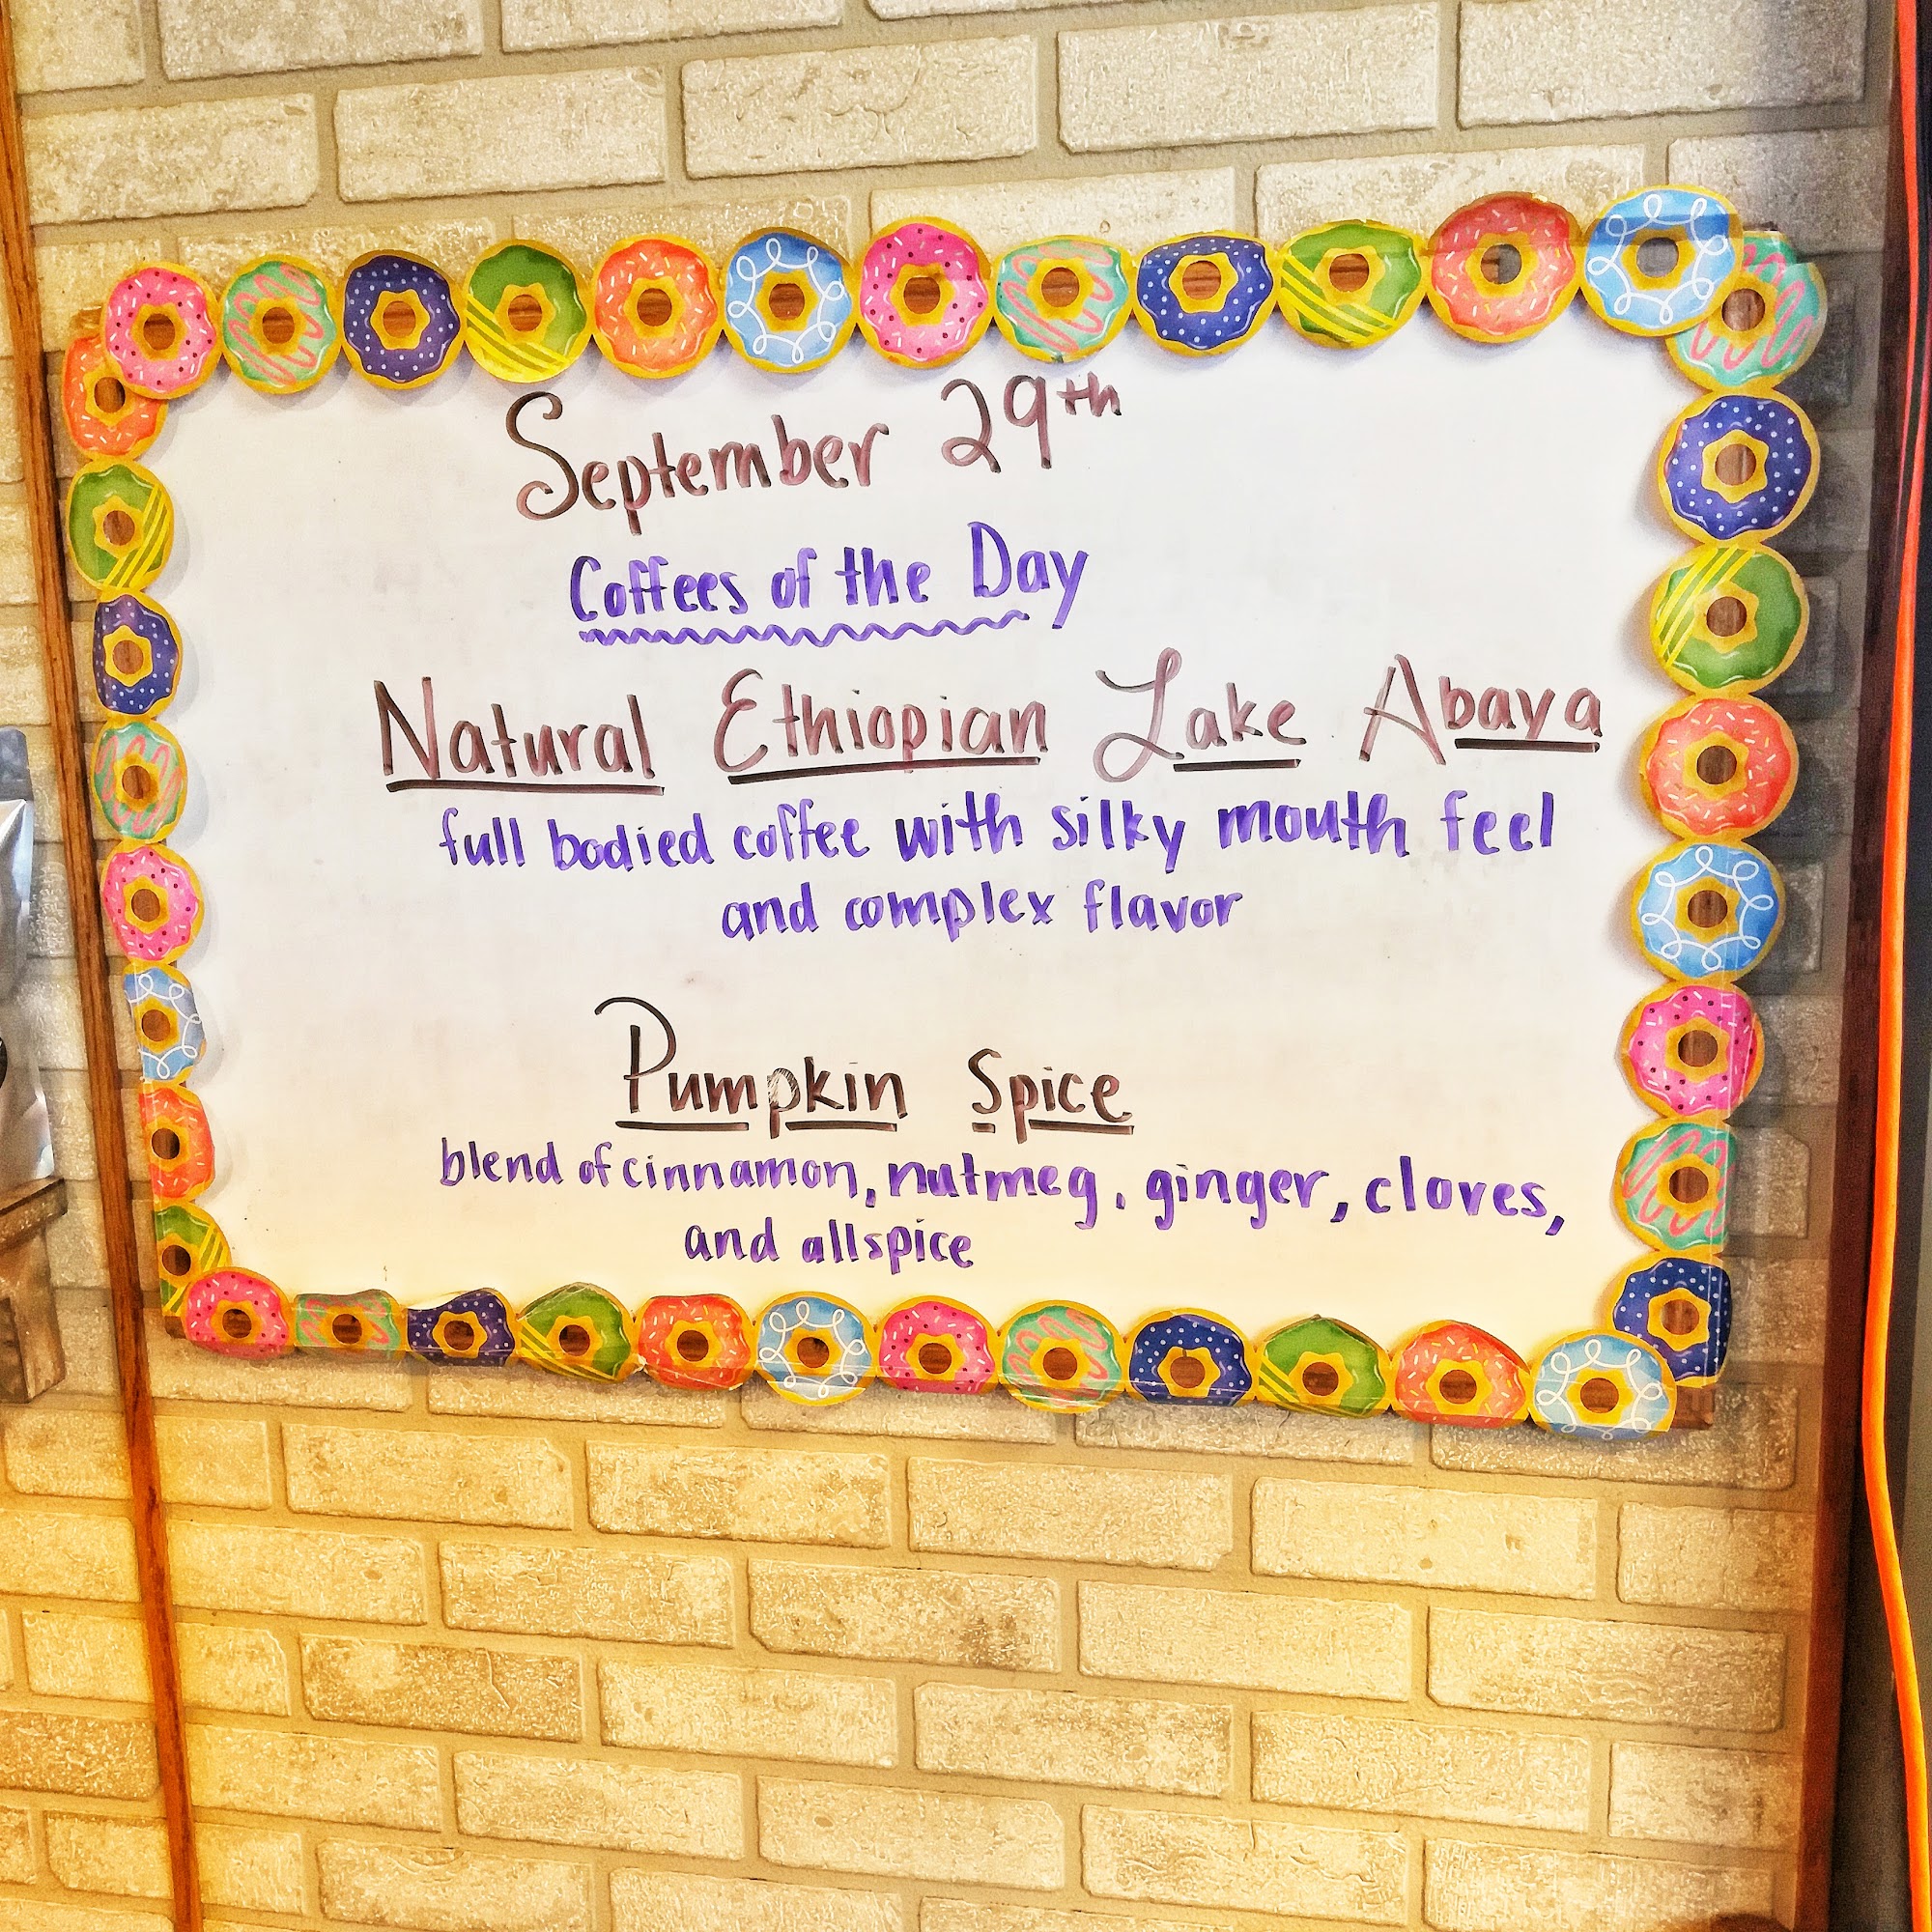 September 29th
Coffees of the Day
Natural Ethiopian Lake Abaya
full bodied coffee with silky mouth feel
and complex flavor
Pumpkin Spice
blend of cinnamon, nutmeg, ginger, cloves,
and allspice